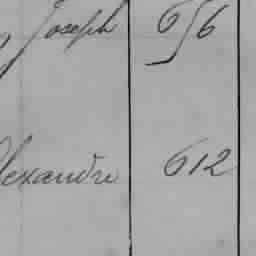 Joseph 656
lexandre 612